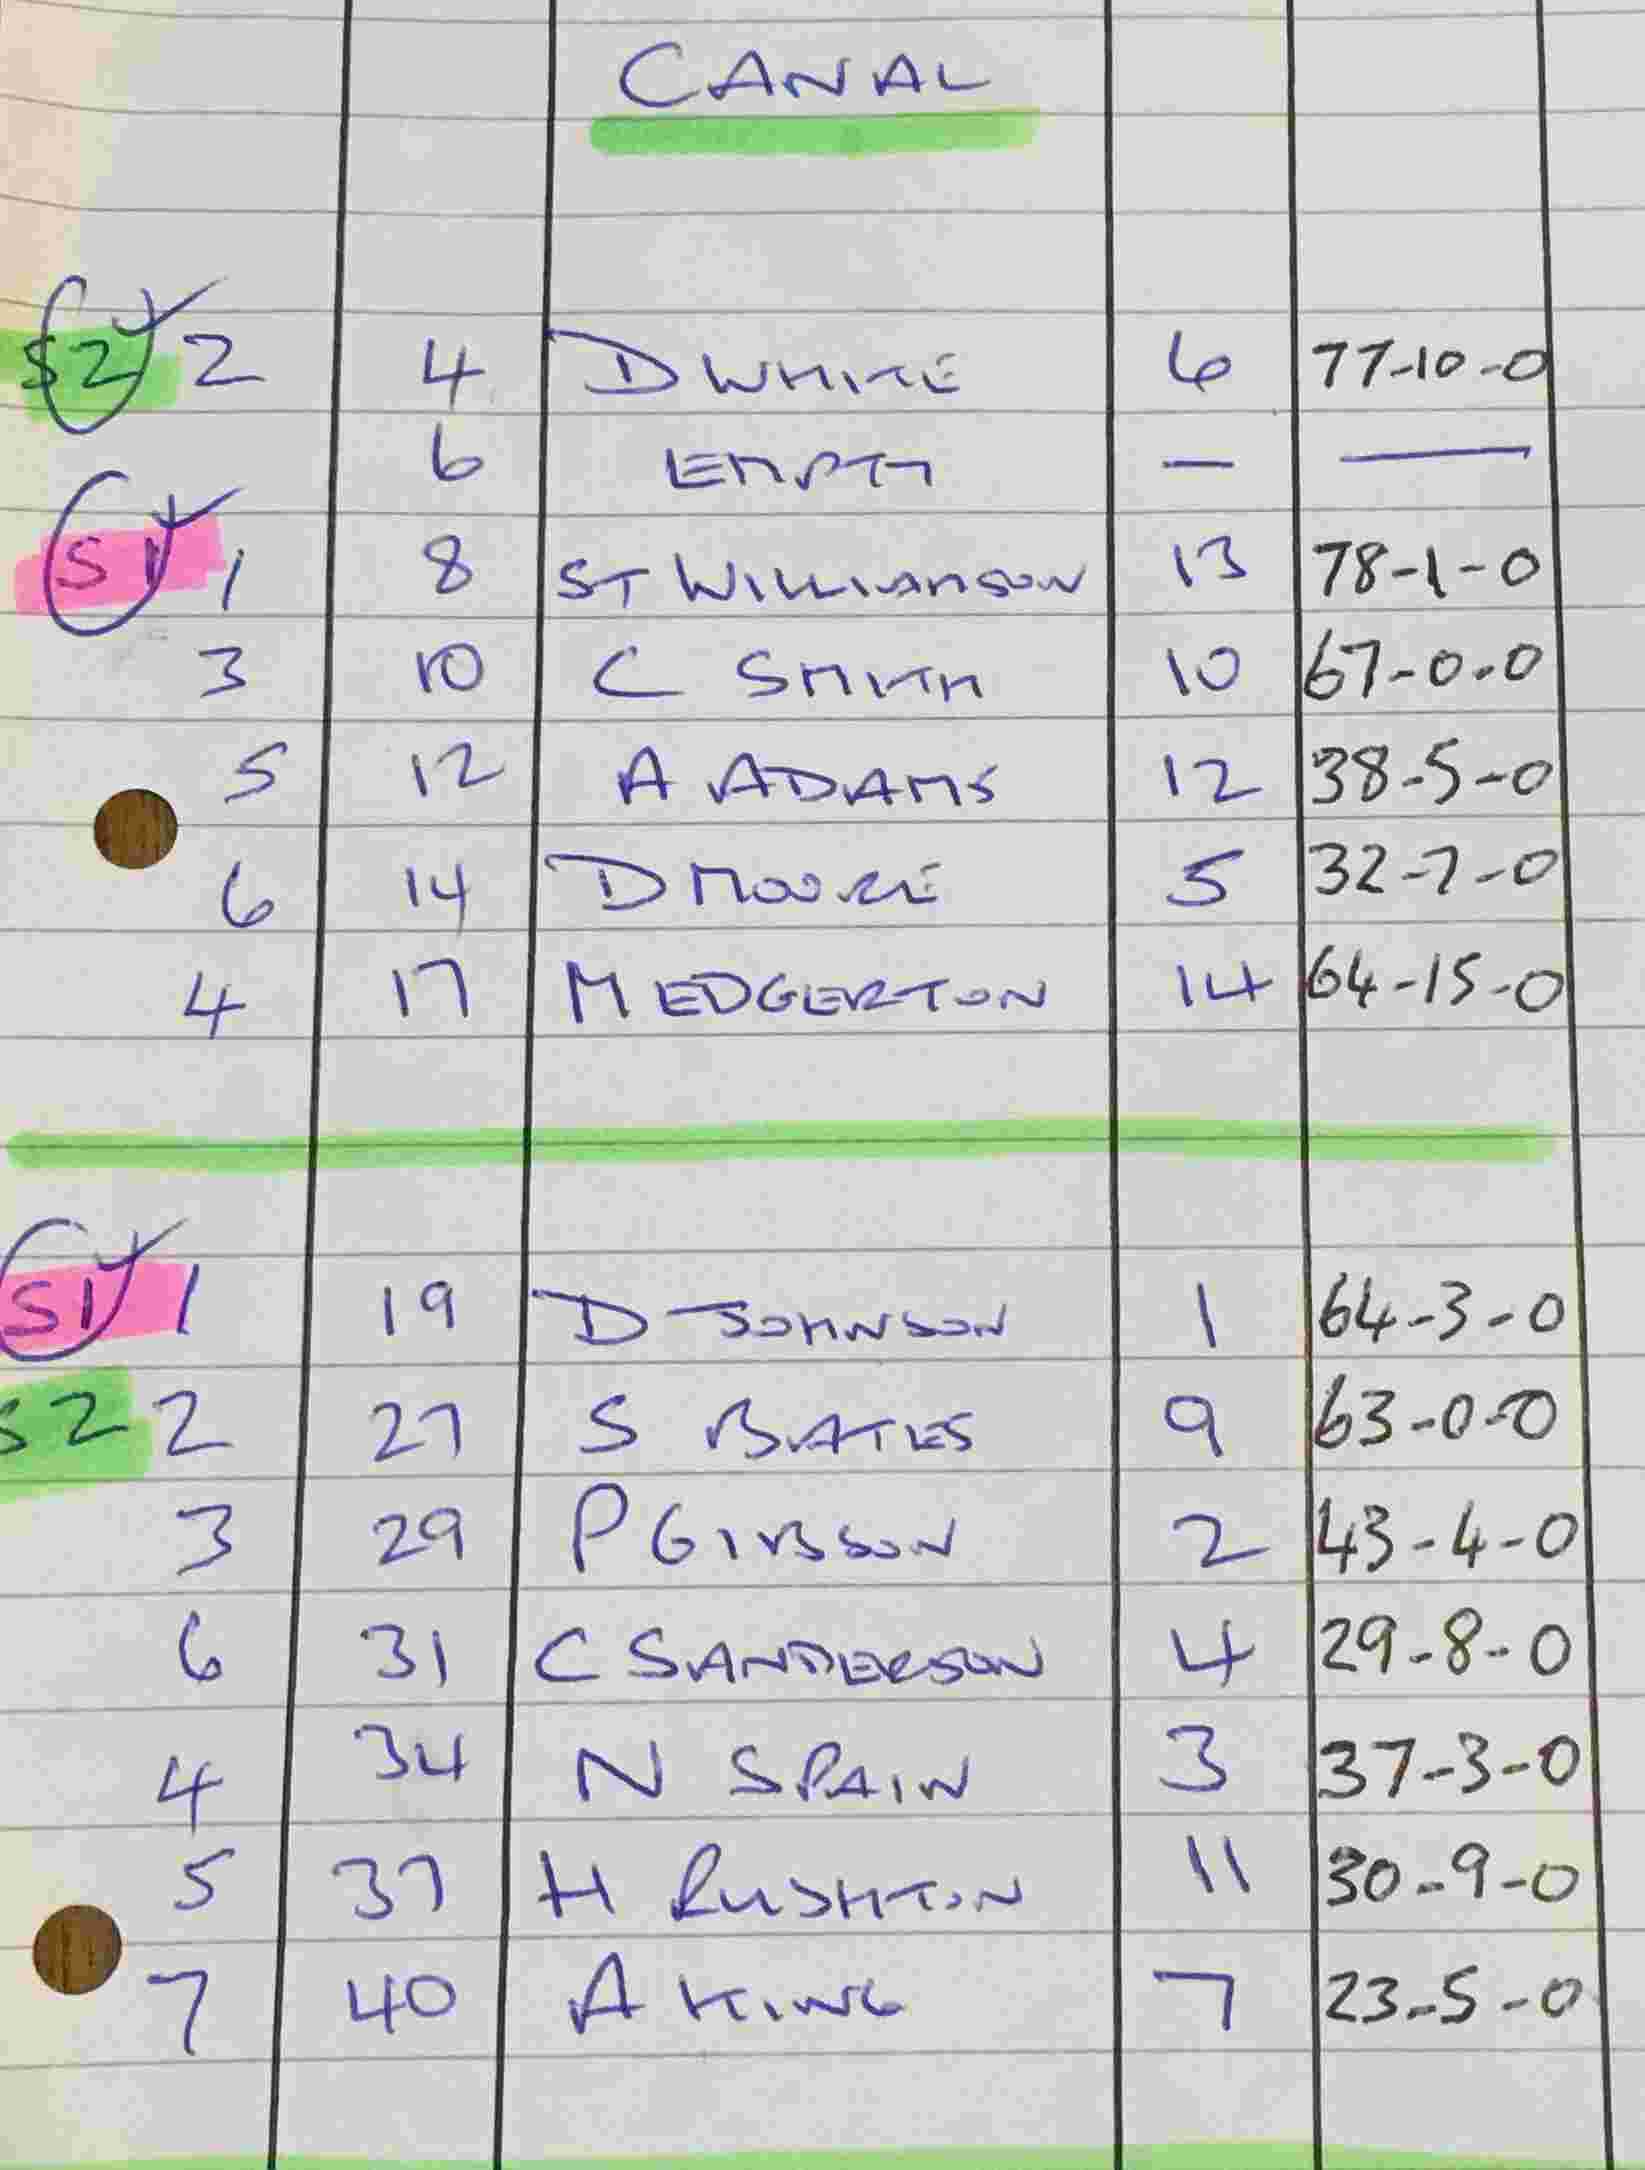 CANAL
S2 2 4 D WHITE 6 77-10-0
6 EMPTY — —
S1 1 8 ST WILLIAMSON 13 78-1-0
3 10 C SMITH 10 67-0-0
5 12 A ADAMS 12 38-5-0
6 14 D MOORE 5 32-7-0
4 17 M EDGERTON 14 64-15-0
S1 1 19 D JOHNSON 1 64-3-0
S2 2 27 S BATES 9 63-0-0
3 29 P GIBSON 2 43-4-0
6 31 C SANDERSON 4 29-8-0
4 34 N SPAIN 3 37-3-0
5 37 H RUSHTON 11 30-9-0
7 40 A KING 7 23-5-0